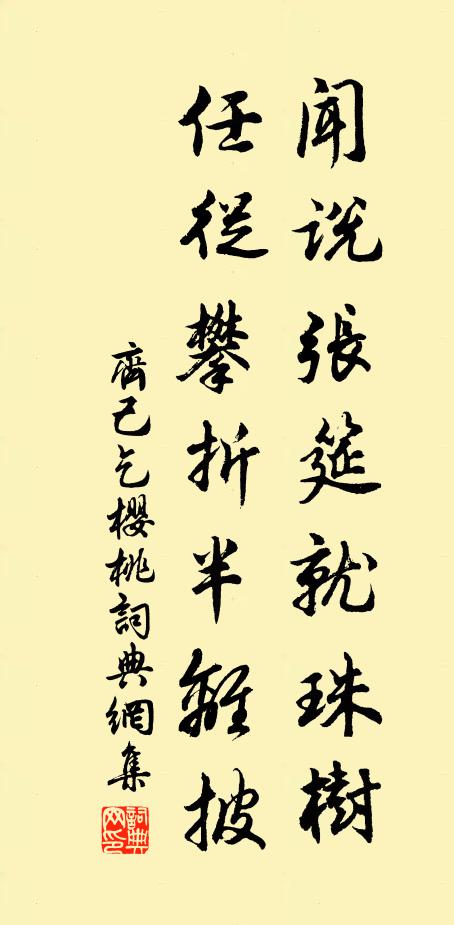 聞説張筵就珠樹
任從攀折半離披
齊己乞櫻桃詞典網集
詞典网印